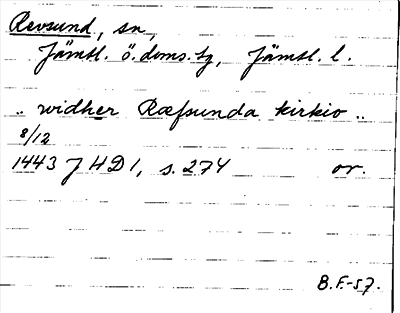 Revsund, sn,
Jämtl. ö. doms. tg, Jämtl. l.
.. widher Ræfsunda kirkio ..
8/12
1443 JHD 1, s. 274 or.
B.F.-57.